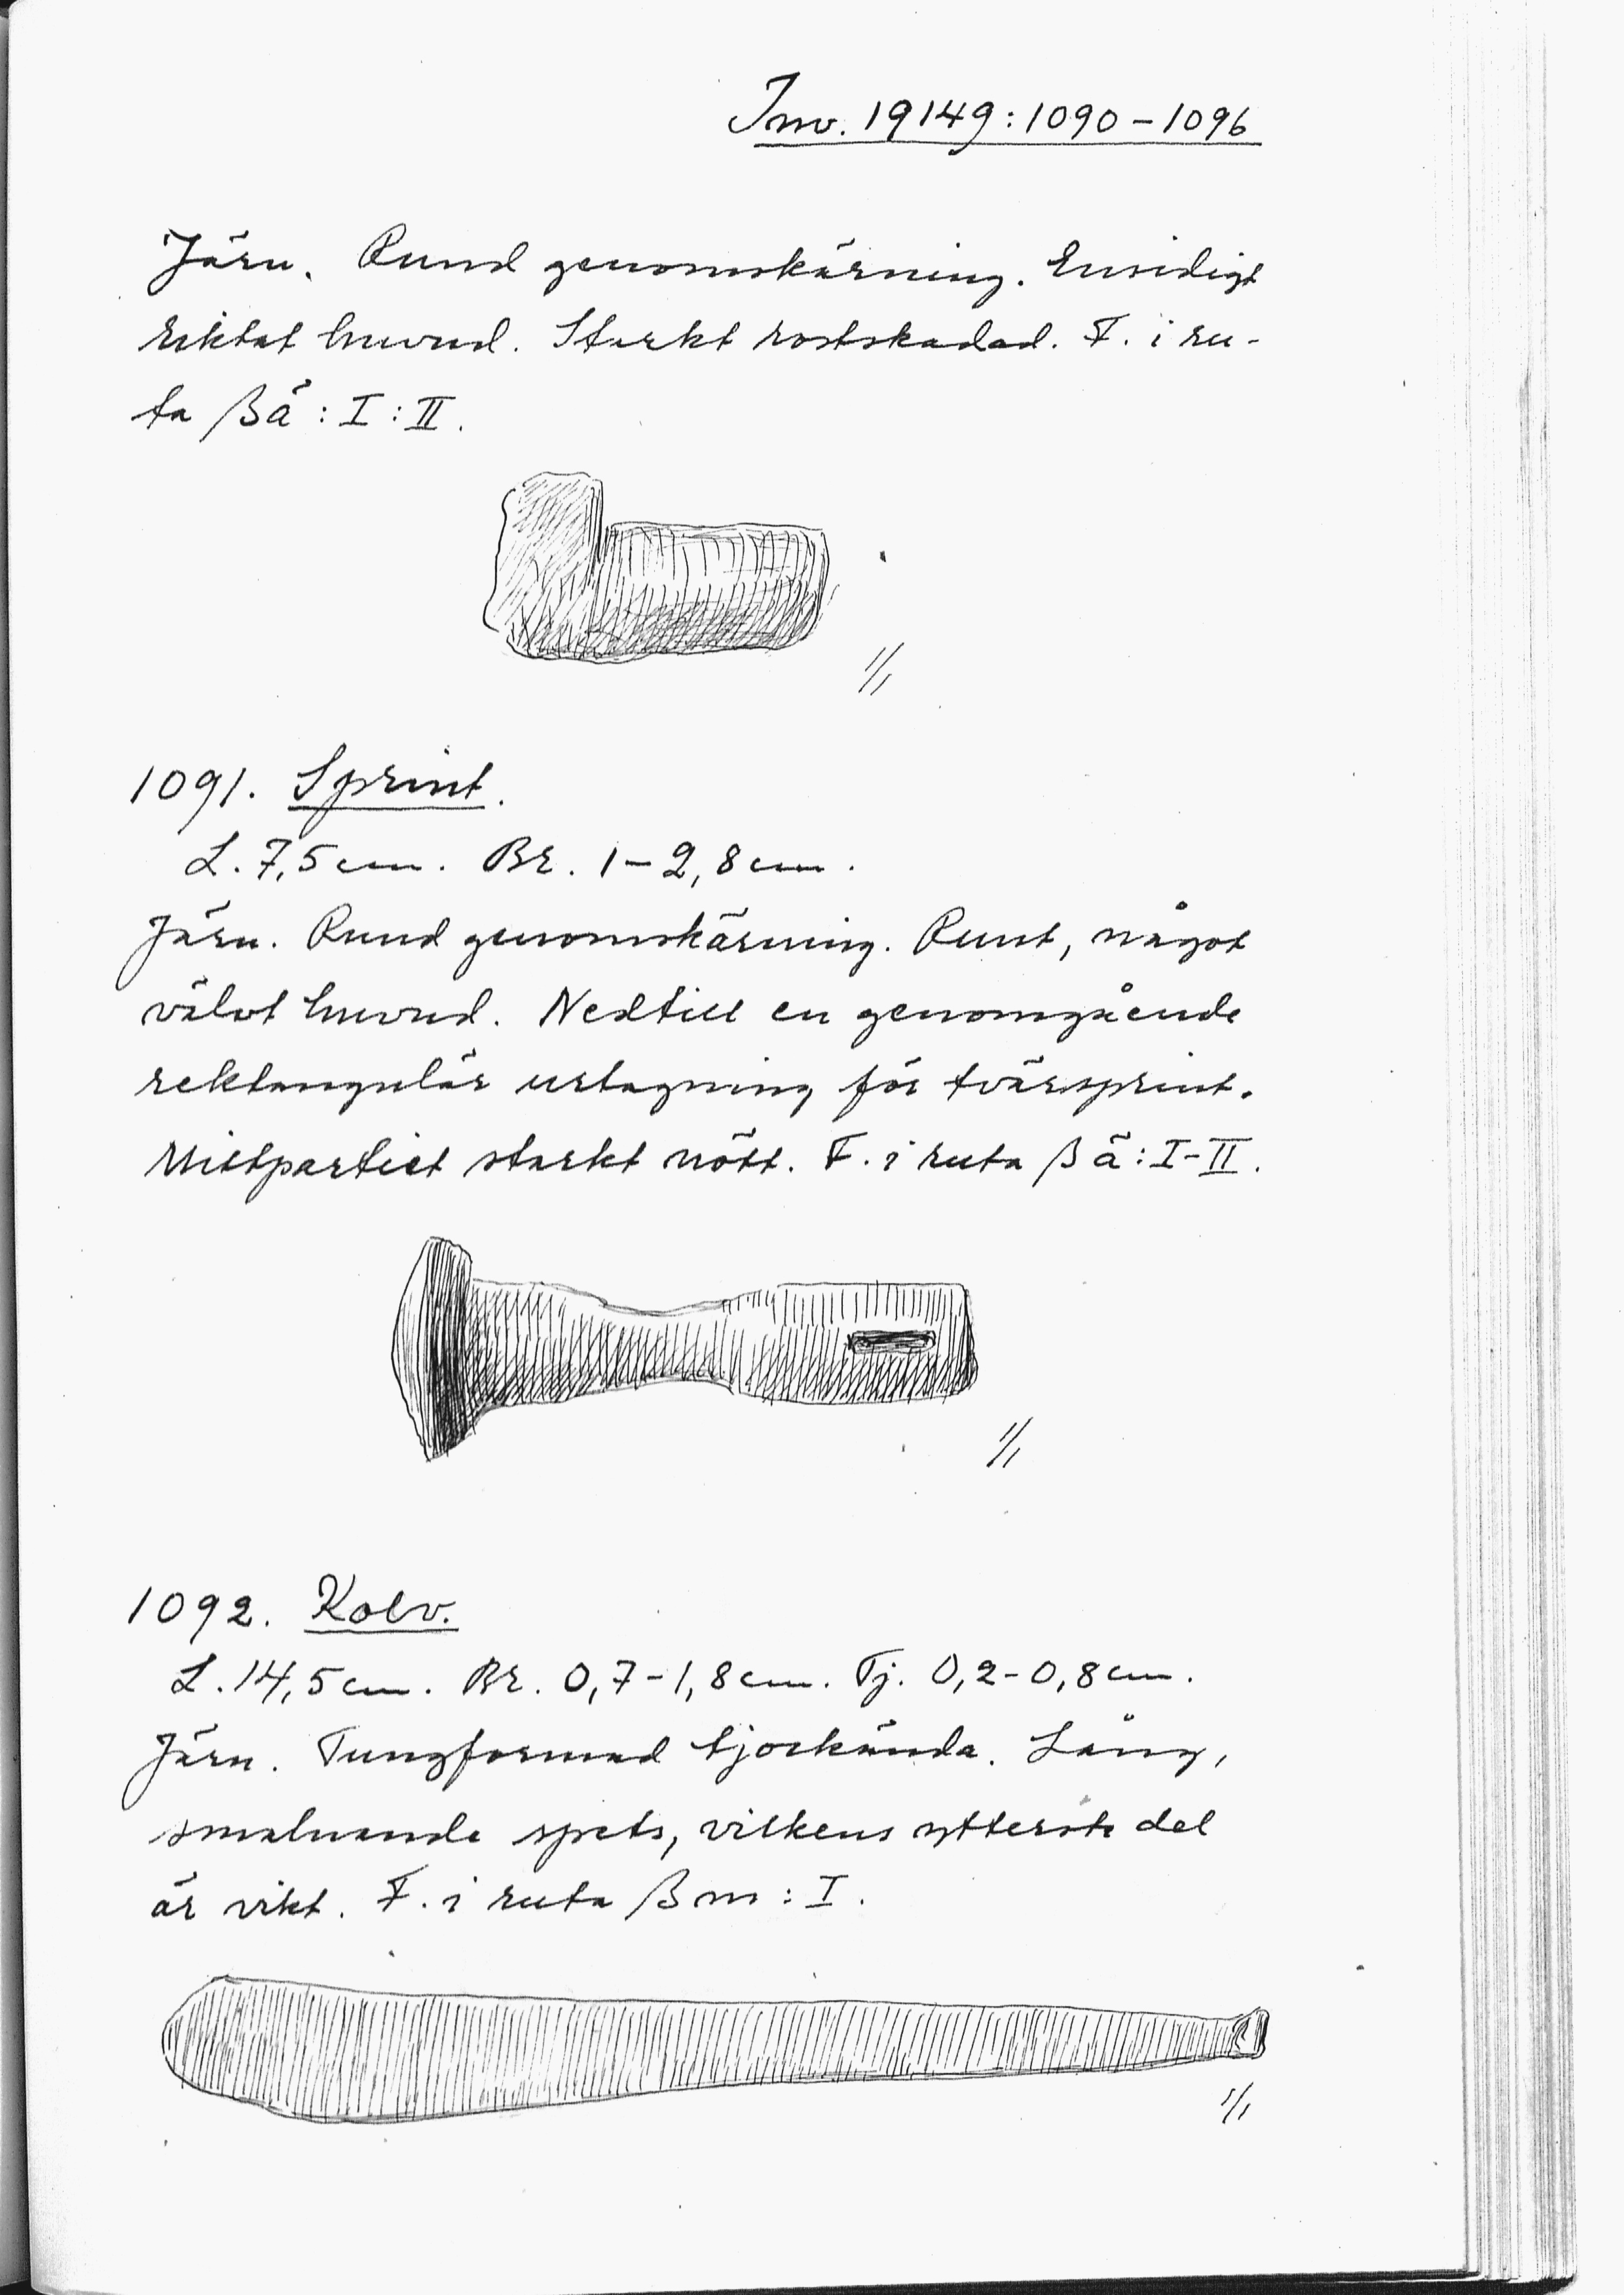 Inv. 19149:1090-1096
Järn. Rund genomskärning. Ensidigt
riktat huvud. Starkt rostskadad. F. i ru-
ta βä:I:II.
1/1
1091. Sprint.
L. 7,5 cm. Br. 1-2,8 cm.
Järn. Rund genomskärning. Runt, något
välvt huvud. Nedtill en genomgående
rektangulär urtagning för tvärsprint.
Mittpartiet starkt nött. F. i ruta βä:I-II.
1/1
1092. Kolv.
L. 14,5 cm. Br. 0,7-1,8 cm. Tj. 0,2-0,8 cm.
Järn. Tungformad tjockända. Lång,
smalnande spets, vilkens ytterste del
är vikt. F. i ruta βm:I.
1/1